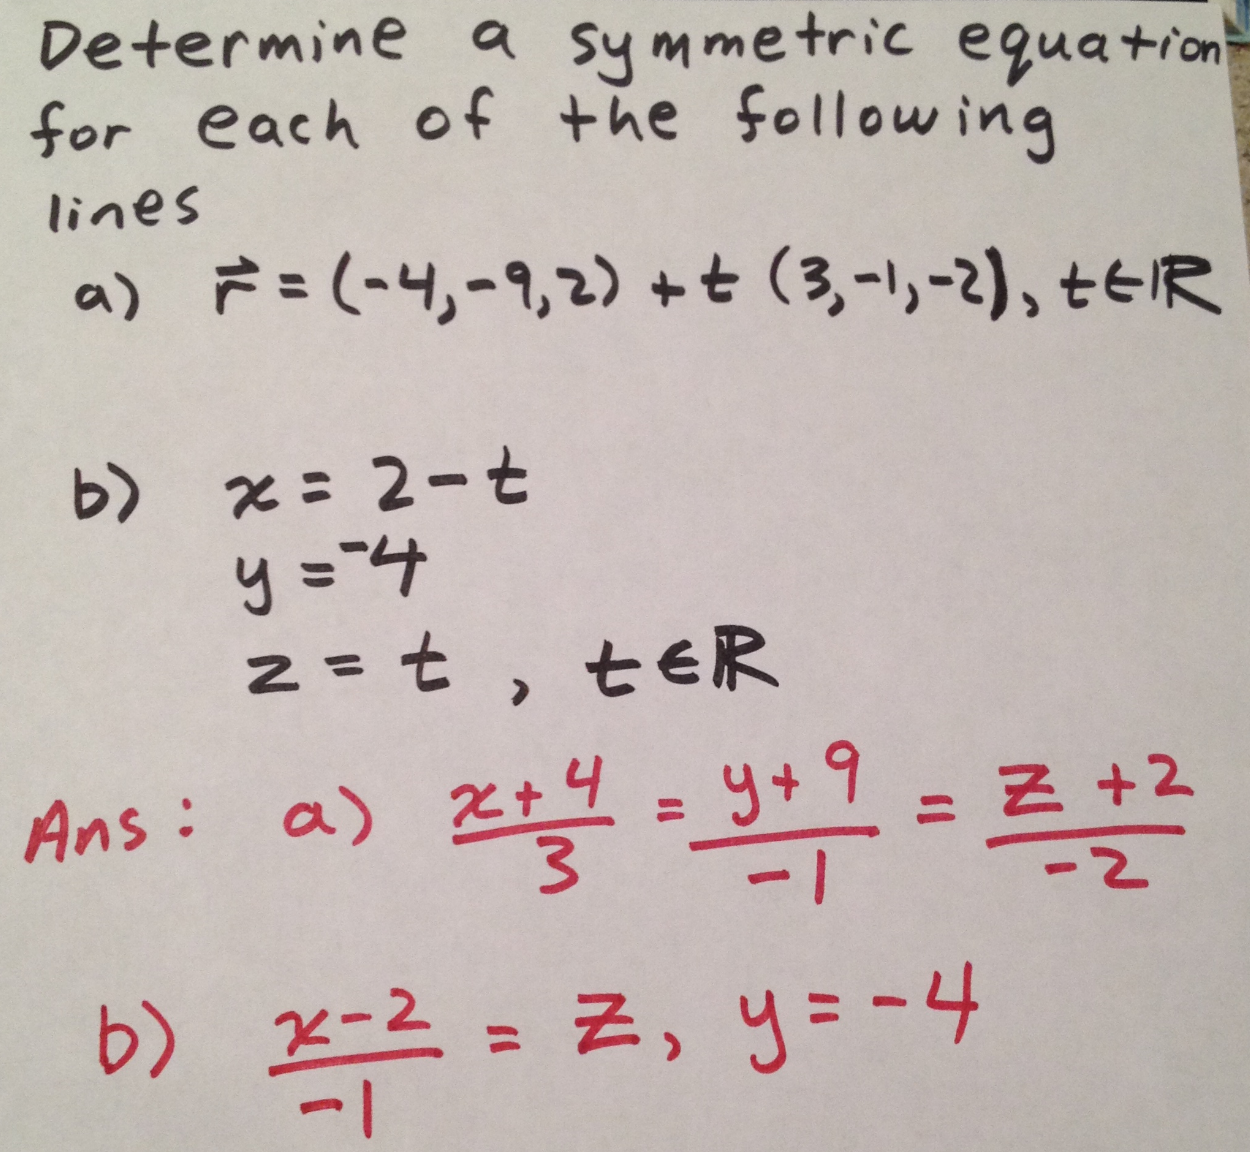 Determine a symmetric equation
for each of the following
lines
a) r⃗ = (-4,-9,2) + t (3,-1,-2), t∈ℝ
b) x = 2-t
y = -4
z = t , t∈ℝ
Ans: a) (x+4)/3 = (y+9)/-1 = (z+2)/-2
b) (x-2)/-1 = z, y = -4